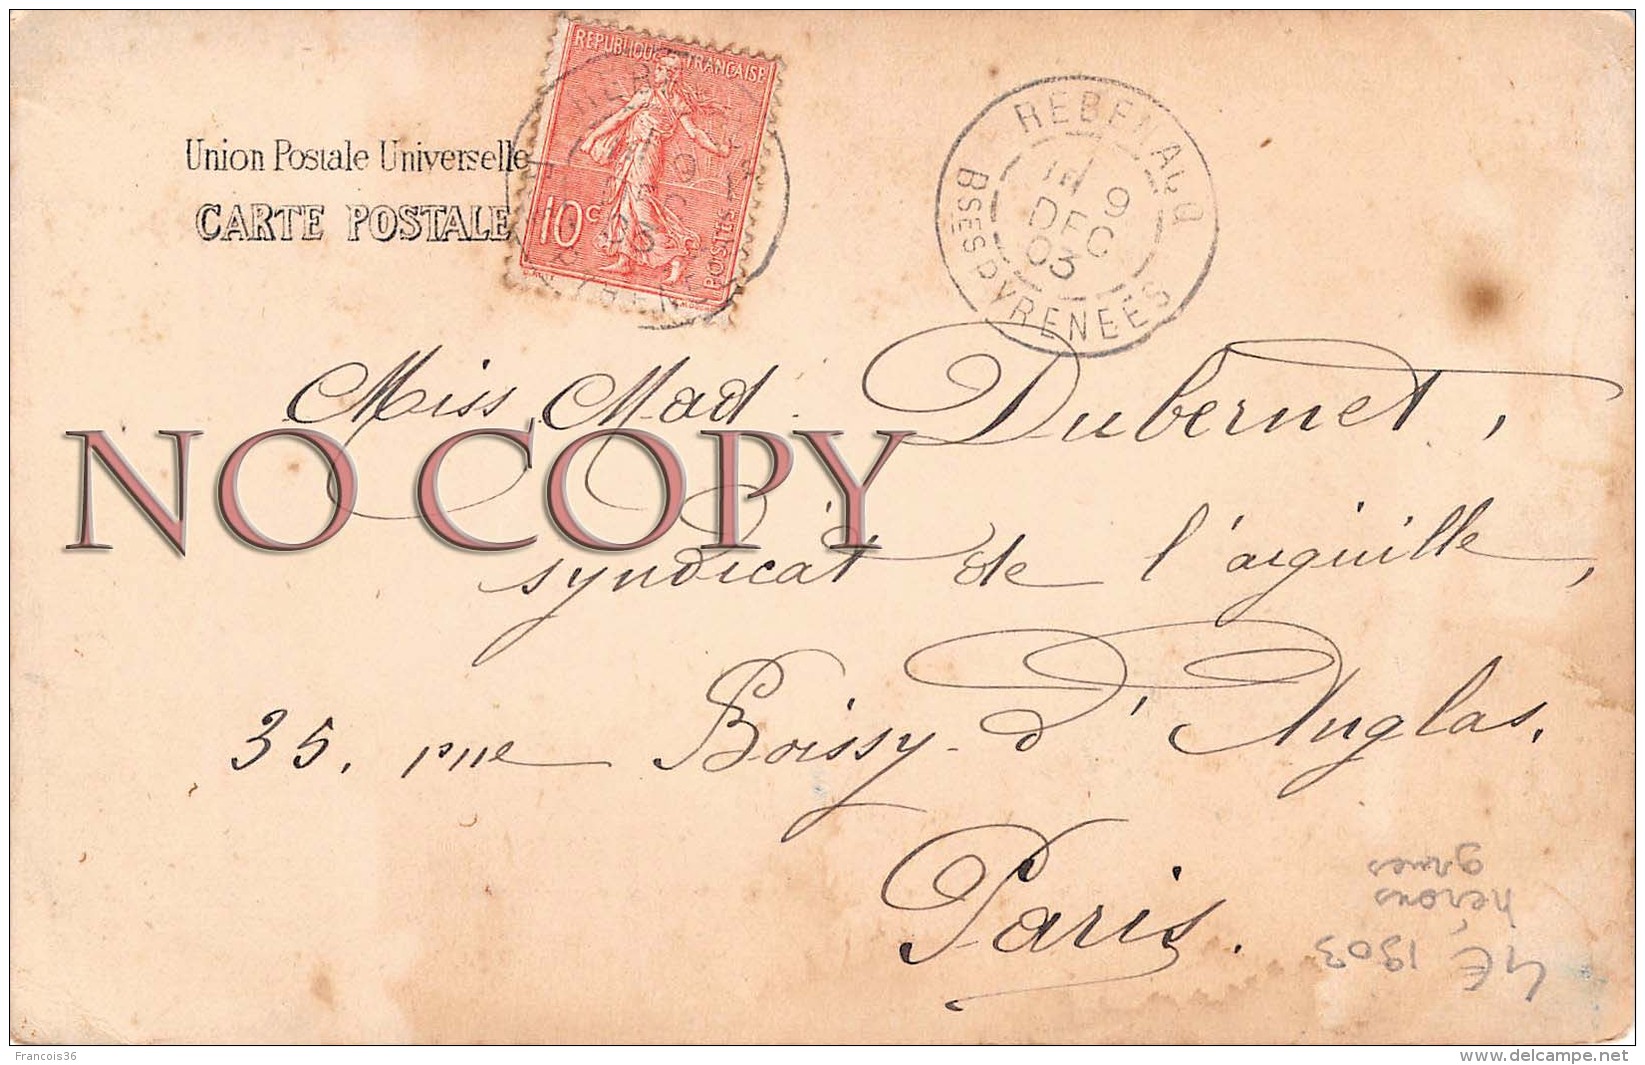 REPUBLIQUE FRANCAISE
10c
POSTES
REBENACQ
9
DEC
03
BSES PYRENEES
Union Postale Universelle
CARTE POSTALE
Miss Mad. Dubernet,
NO COPY
syndicat de l'aiguille,
35, rue Boissy-d'Anglas.
Paris.
4€ 1903
hérons
grues
Francois36
www.delcampe.net